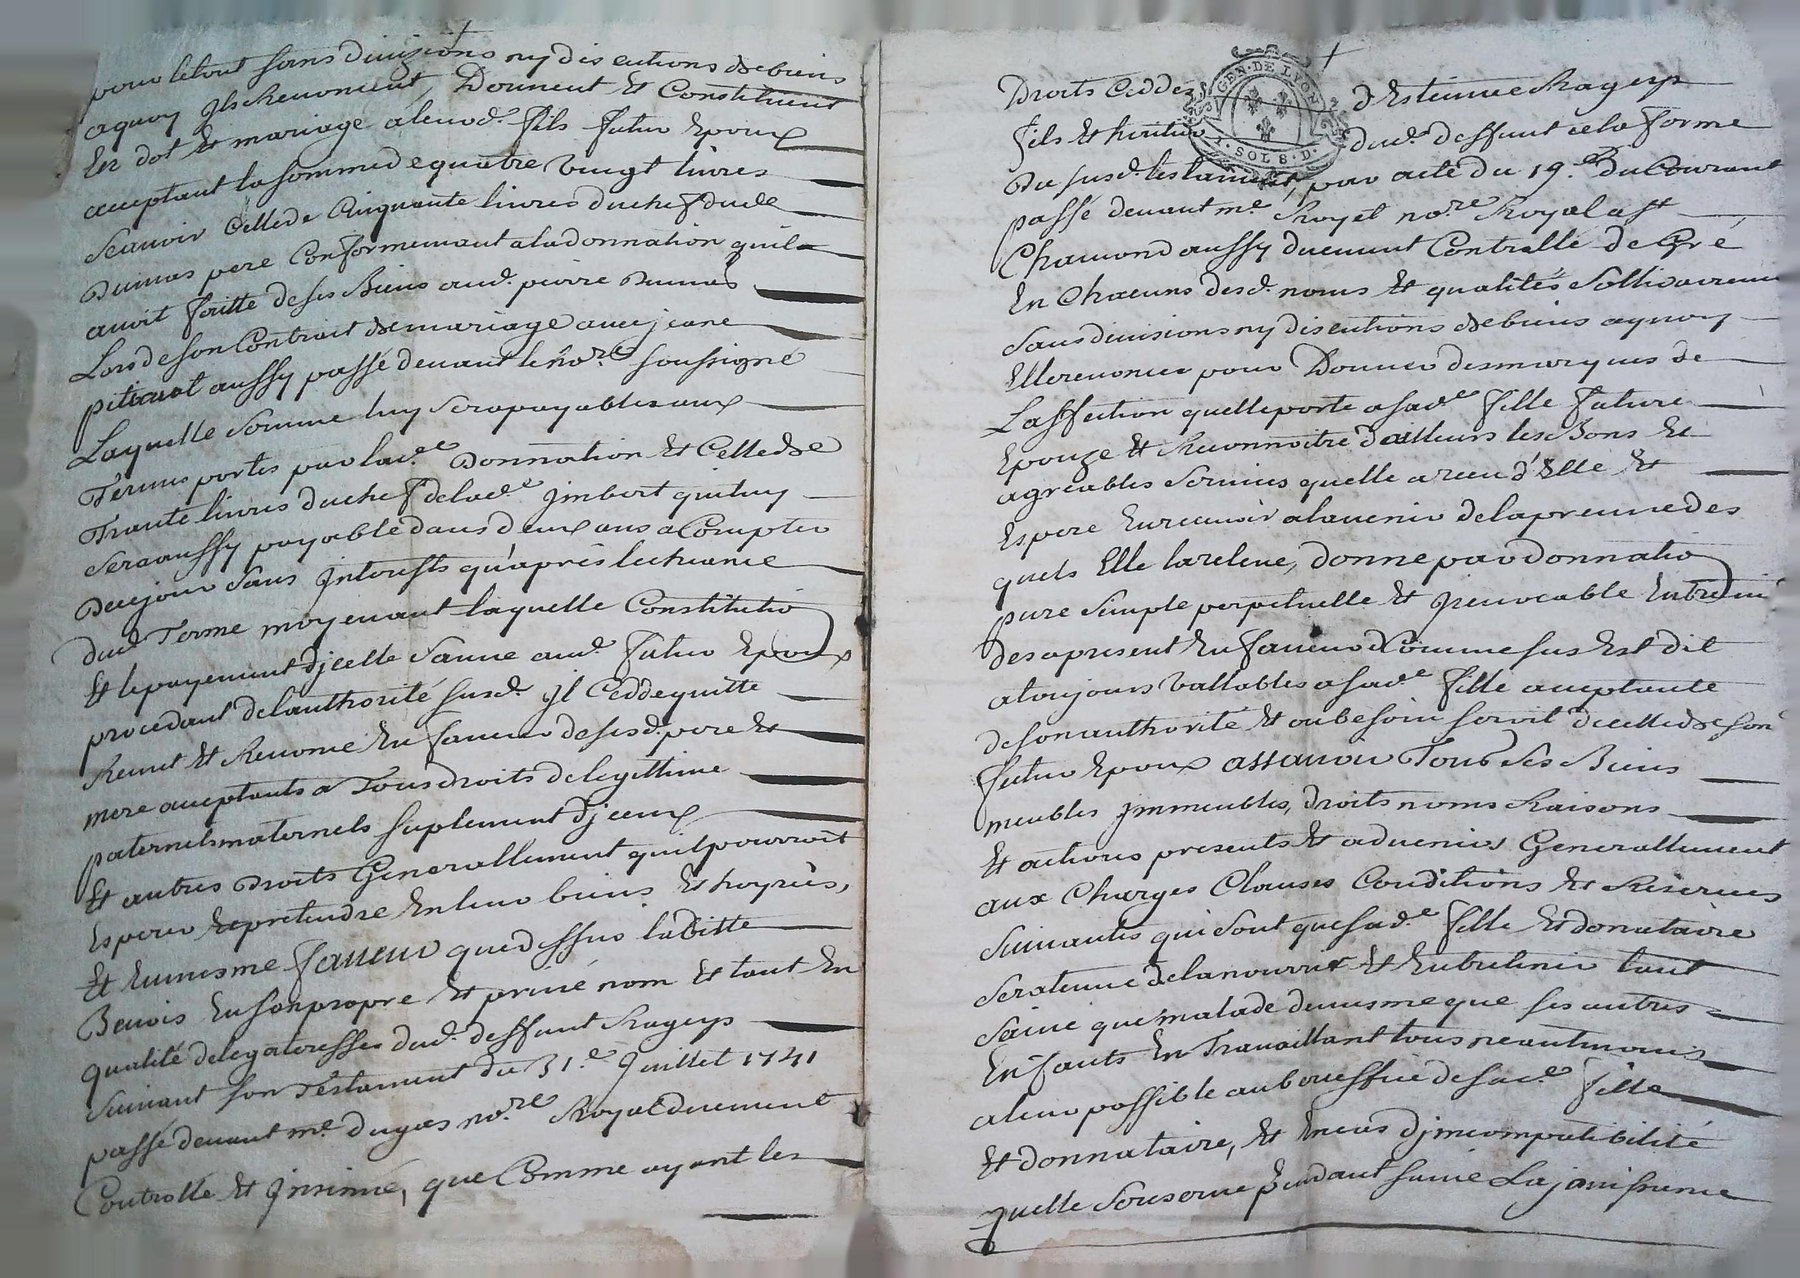 pour letout sans divizions ny discutions debiens
aquoy Jls Renoncent, Donnent Et Constituent
En dot Et mariage aleurd. fils futur Epoux
acceptant la somme de quatre vingt livres
Scavoir Celle de Cinquante livres du chef dud.
Dumas pere Conformement ala donnation quil a
avoit faitte de ses Biens aud. pierre Dumas
Lors de son Contrait de mariage avec jeane
aussy passé devant le no.re soussigné
Laquelle somme luy sera payable aux
Termes portés par lad.e Donnation Et Celle de
Trante livres du chef de lad.e Jmbert qui luy
sera aussy payable dans deux ans a Compter
De cejour sans Jnterests qu'après lecheance
dud. Terme moyenant laquelle Constitutio
Et le payement d'jcelle sanne aud. futur Epoux
procedant de l'authorité susd. Jl Cedde quitte
Remet Et Renonce En faveur de sesd. pere Et
mere acceptants a Tous droits de legittime
paternels maternels suplement d'jceux
Et autres Droits Generallement quil pourroit
Esperer Et pretendre En leur biens Et hoyries,
Et En mesme faveur que dessus laditte
Benois En son propre Et privé nom Et tant En
qualité de legataresses dud. deffunt Rageys
suivant son Testament du 31.e Juillet 1741
passé devant me. Dugas no.re Royal duement
Controllé Et Jnsinué, que Comme ayant les
Droits Ceddés d'Estienne Rageys
fils Et heritier dud. deffunt et la forme
Du susd. testament, par acte du 19.e Du Courant
passé devant me. Royet no.re Royal a st
Chamond aussy duement Controllé De Gré
En Chacuns desd. noms Et qualités sollidairement
sans divisions ny discutions debiens aquoy
Elle renonce pour Donner des marques de
L'affection quelle porte a sad.e fille future
Epouze Et Reconnoitre d'ailleurs les Bons Et
agreables services quelle a receu d'Elle Et
Espere En recevoir alavenir de la preuve des
quels Elle la releve, donne par donnatio
pure simple perpetuelle Et Jrrevocable Entre
des apresent En faveur d Comme sus Est dit
a toujours vallables a sad.e fille acceptante
de son authorité Et au besoin seroit de celle de son
futur Epoux assavoir Tous ses Biens
meubles Jmmeubles, droits noms Raisons
Et actions presents Et advenirs Generallement
aux Charges Clauses Conditions Et Reserves
suivantes qui sont que sad.e fille Et donataire
sera tenue de la nourrir Et Entretenir tant
saine que malade de mesme que ses autres
Enfants En Travaillant tous neantmoins
a leur possible au beneffice de sad.e fille
Et donnataire, Et En cas d'jncompatibilité
quelle se reserve pendant sa vie La jouissance